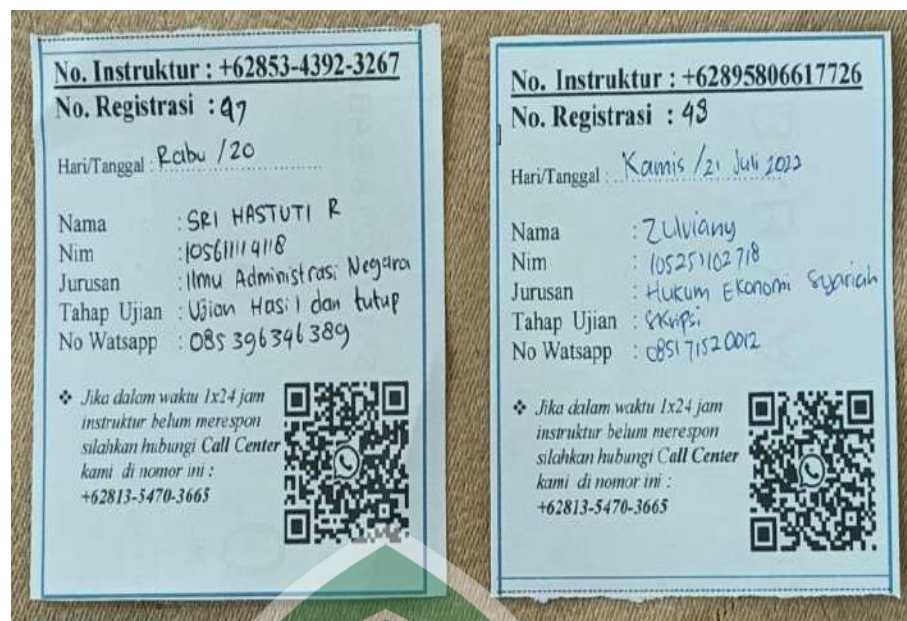 No. Instruktur : +62853-4392-3267
No. Registrasi : 97
Hari/Tanggal : Rabu /20
Nama : SRI HASTUTI R
Nim : 105611114118
Jurusan : Ilmu Administrasi Negara
Tahap Ujian : Ujian Hasil dan tutup
No Watsapp : 085 396396389
❖ Jika dalam waktu 1x24 jam
instruktur belum merespon
silahkan hubungi Call Center
kami di nomor ini :
+62813-5470-3665
No. Instruktur : +62895806617726
No. Registrasi : 98
Hari/Tanggal : Kamis /21 Juli 2022
Nama : Zulviany
Nim : 105251102718
Jurusan : Hukum Ekonomi Syariah
Tahap Ujian : Skripsi
No Watsapp : 085171520012
❖ Jika dalam waktu 1x24 jam
instruktur belum merespon
silahkan hubungi Call Center
kami di nomor ini :
+62813-5470-3665